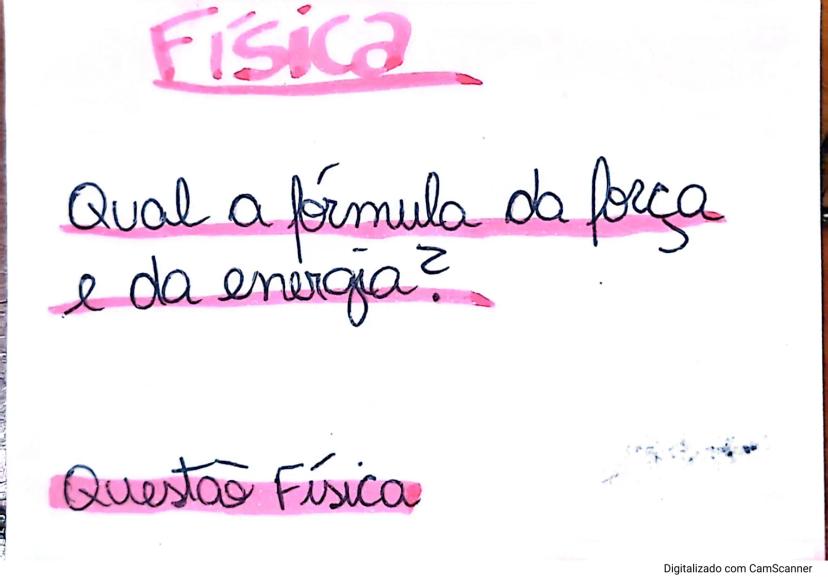 Física
Qual a fórmula da força
e da energia?
Questão Física
Digitalizado com CamScanner